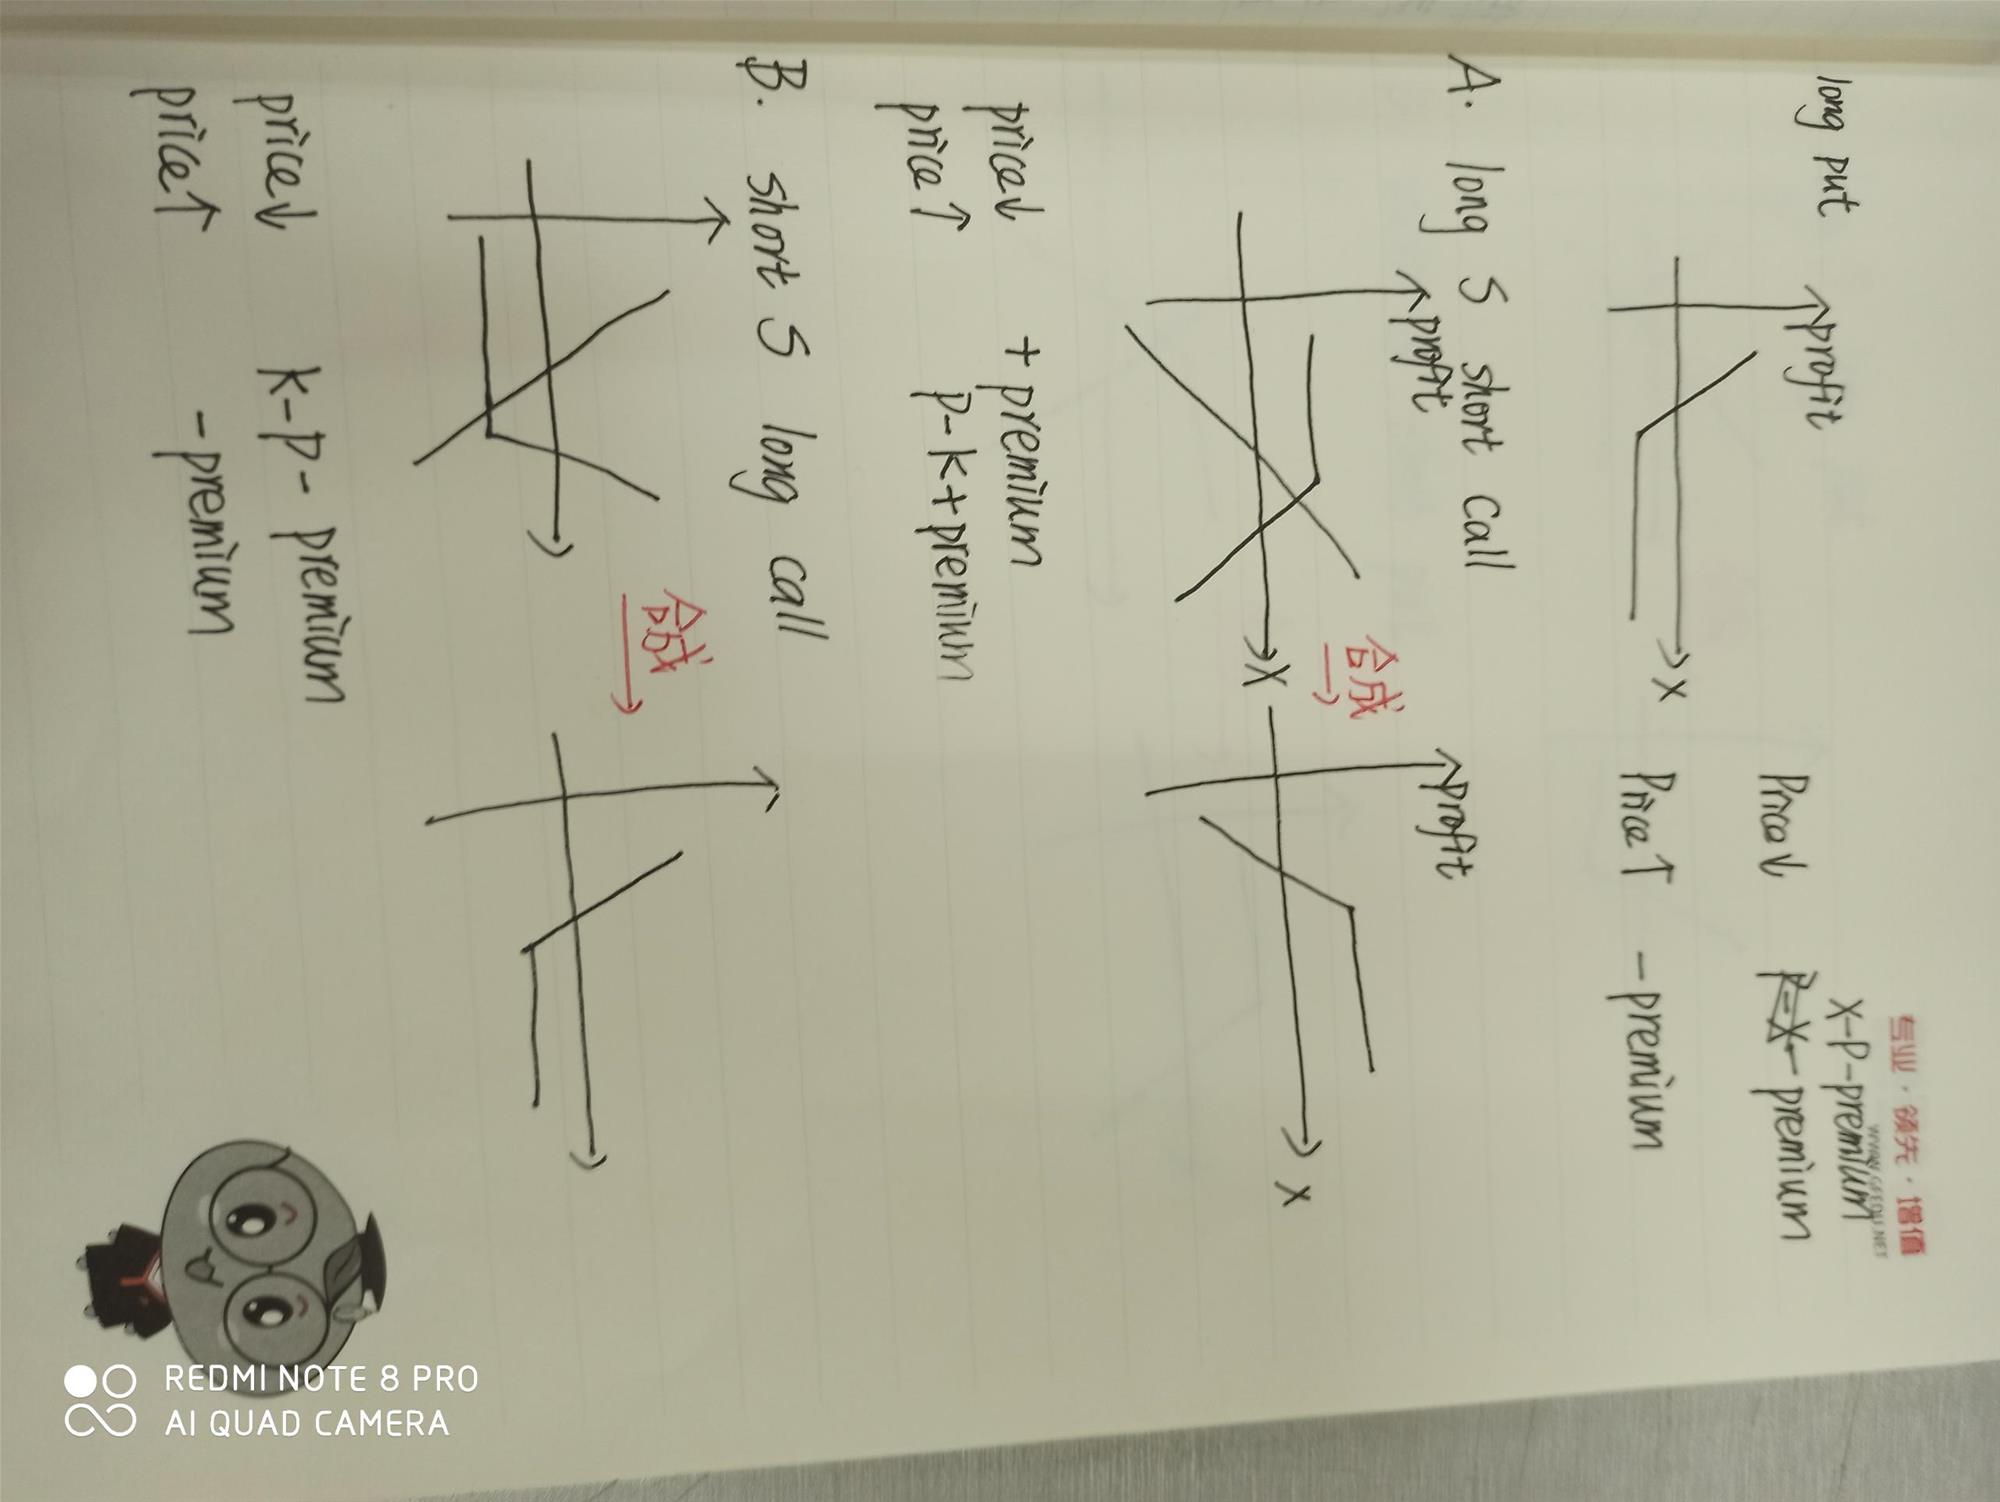 专业·领先·增值
WWW.GFEDU.NET
long put
profit
x
Price↓ X-P-premium
P-X-premium
Price↑ -premium
A. long S short call
profit
x
合成
→
profit
x
price↓ +premium
price↑ P-K+premium
B. short S long call
合成
→
price↓ K-P-premium
price↑ -premium
REDMI NOTE 8 PRO
AI QUAD CAMERA